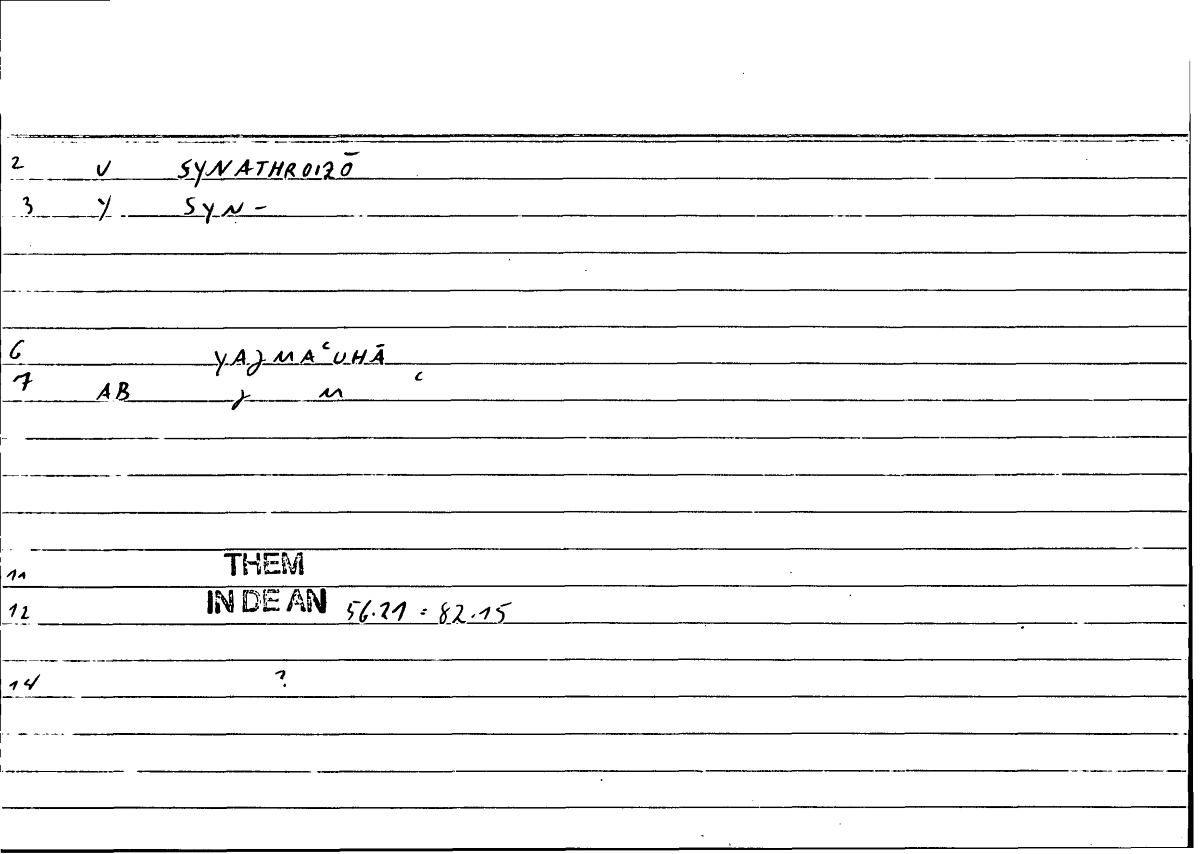 2 V SYNATHROIZŌ
3 Y SYN-
6 YAJMAʿUHĀ
7 AB J M ʿ
11 THEM
12 IN DE AN 56.21 = 82.15
14 ?